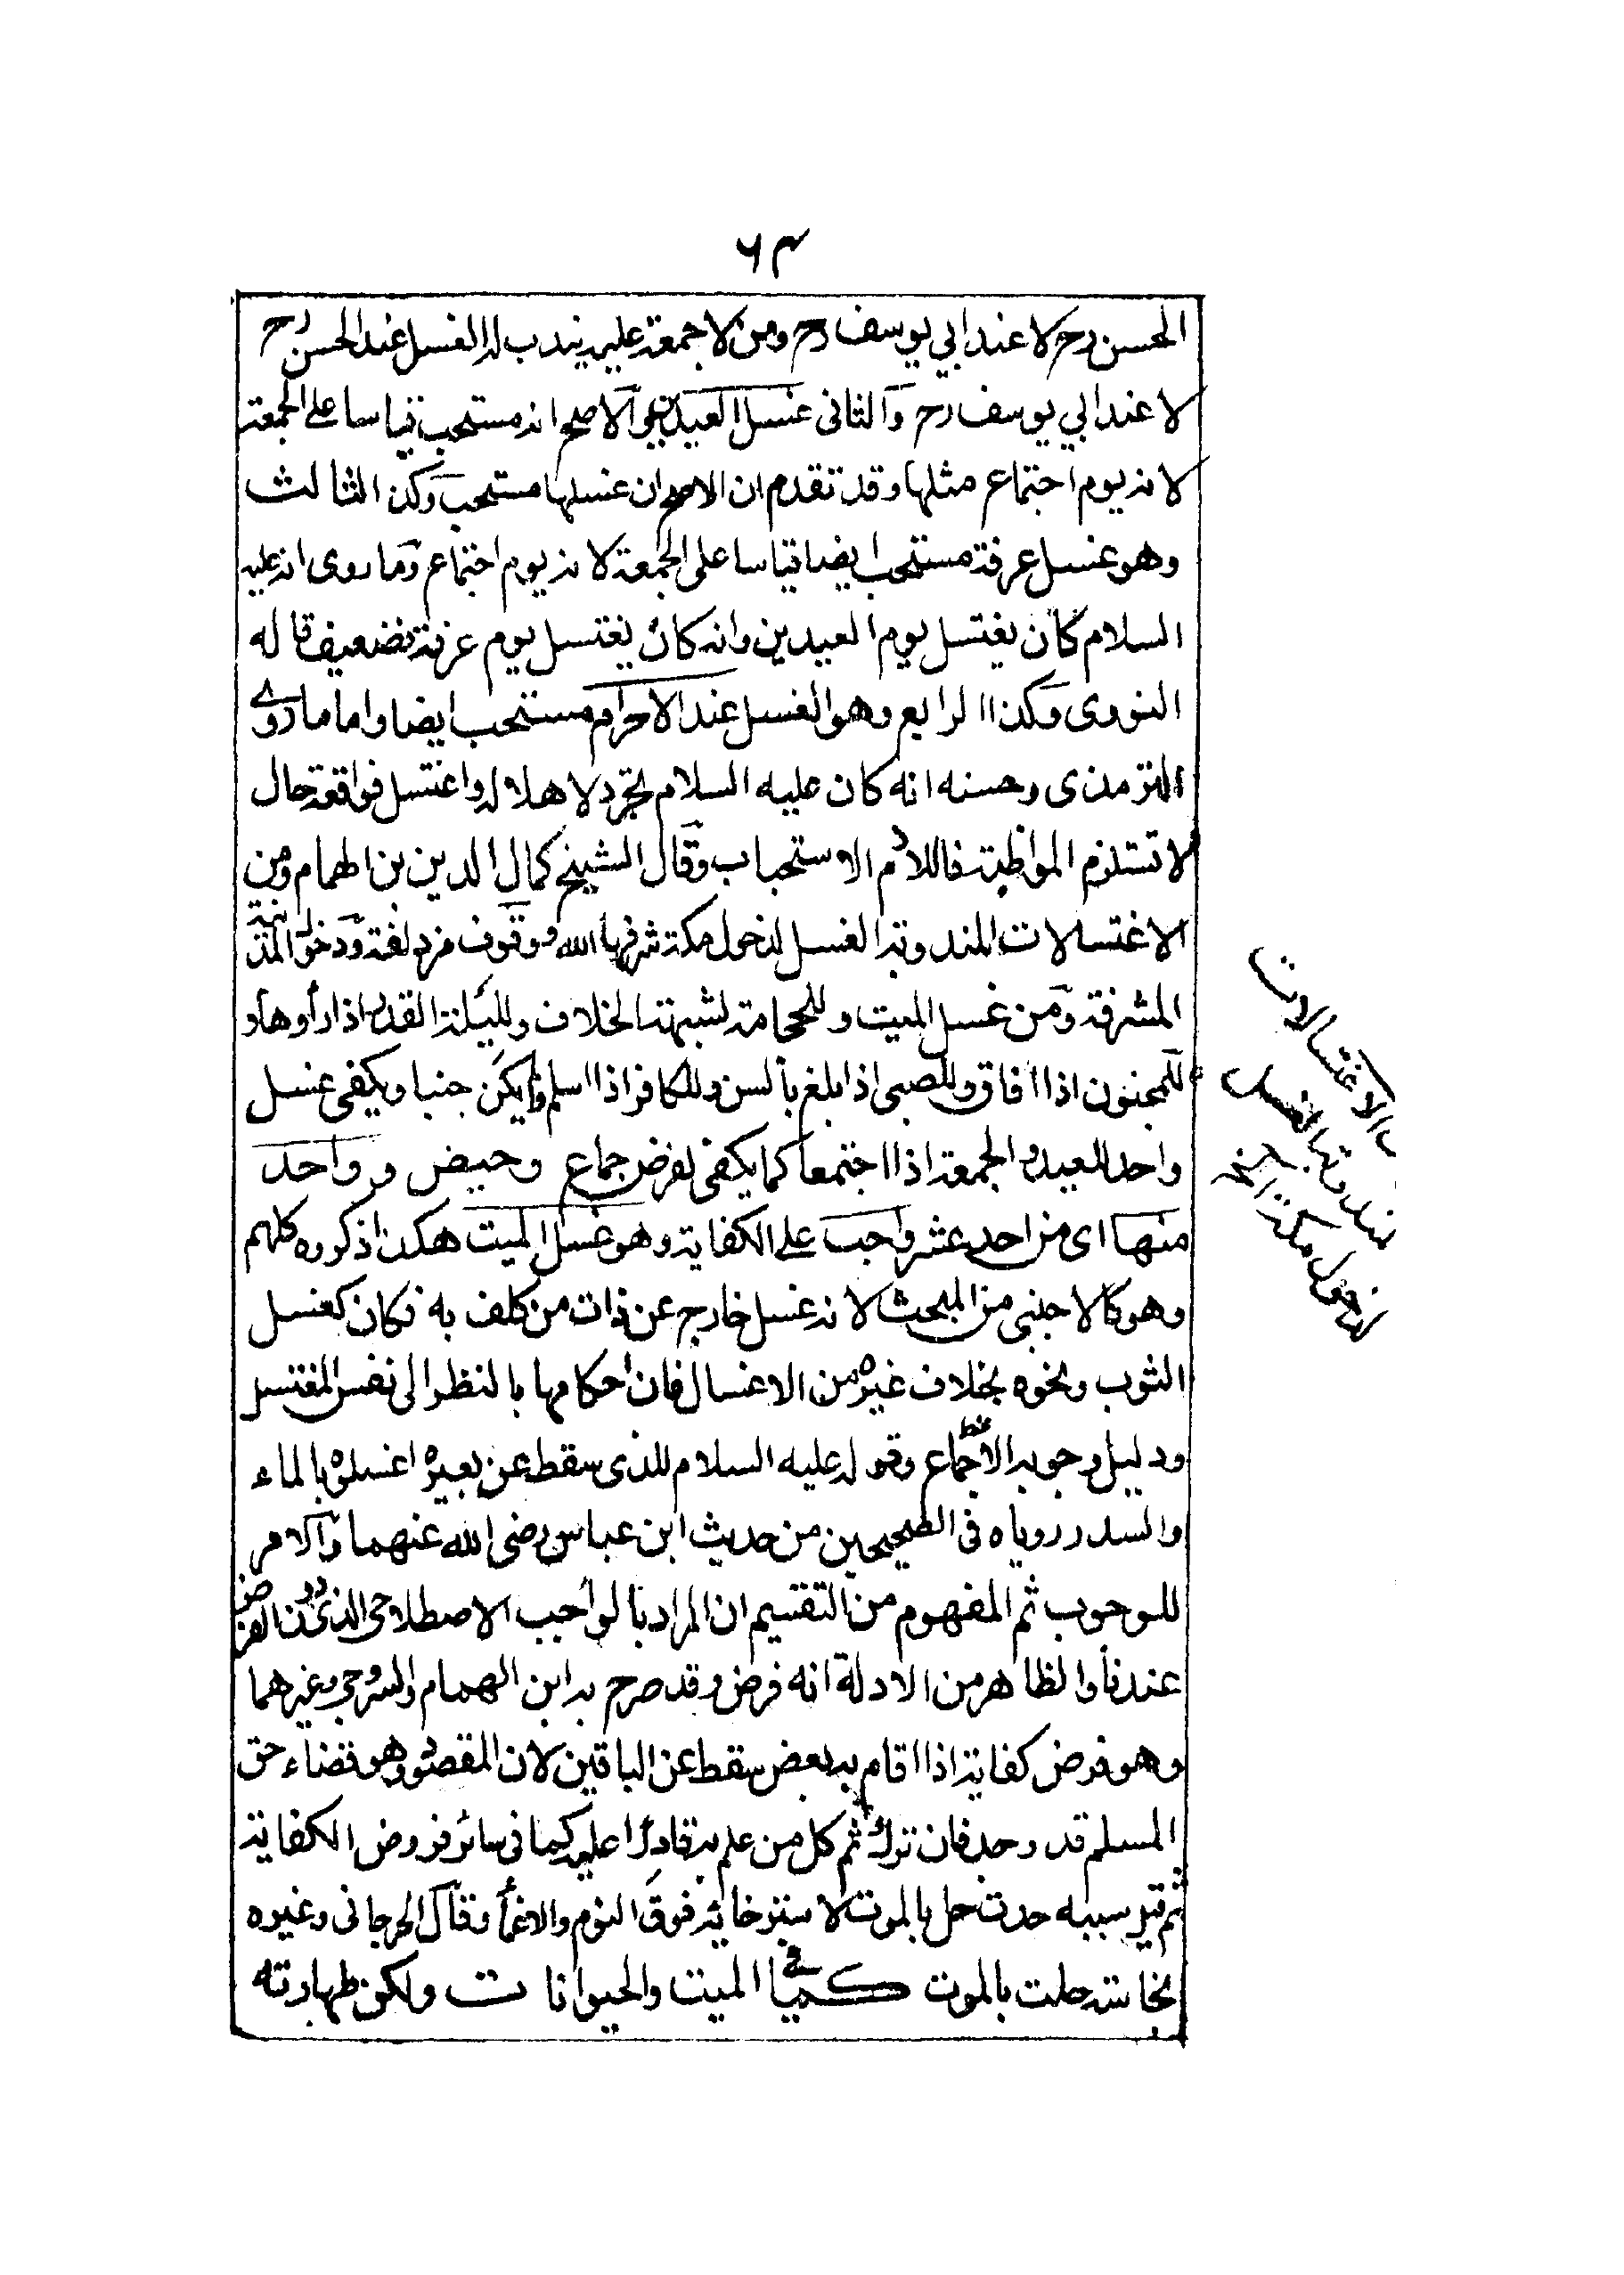 ٦٣
الحسن رح لا عند ابي يوسف رح ومن لا جمعة عليه يندب له الغسل عند الحسن رح
لا عند ابي يوسف رح والثانى غسل العيدين الاصح انه مستحب قياسا على الجمعة
لانه يوم اجتماع مثلها وقد تقدم ان الاصح ان غسلها مستحب وكذا الثالث
وهو غسل عرفة مستحب ايضا قياسا على الجمعة لانه يوم اجتماع وما روى انه عليه
السلام كان يغتسل يوم العيدين وانه كان يغتسل يوم عرفة فضعيف قاله
النووى وكذا الرابع وهو الغسل عند الاحرام مستحب ايضا واما ما روى
الترمذى وحسنه انه كان عليه السلام تجرد لاهلاله واغتسل فواقعة حال
لا تستلزم المواظبة فاللازم الاستحباب وقال الشيخ كمال الدين بن الهمام ومن
الاغتسالات المندوبة الغسل لدخول مكة شرفها الله ووقوف مزدلفة ودخول المدينة
المشرفة ومن غسل الميت وللحجامة لشبهة الخلاف ولليلة القدر اذا رأوها و
للمجنون اذا افاق وللصبى اذا بلغ بالسن وللكافر اذا اسلم ولم يكن جنبا ويكفى غسل
واحد للعيد والجمعة اذا اجتمعا كما يكفى لفرض جماع وحيض و واحد
منها اى من احد عشر واجب على الكفاية وهو غسل الميت هكذا ذكروه كلهم
وهو كالاجنبى من المبحث لانه غسل خارج عن ذات من كلف به فكان كغسل
الثوب ونحوه بخلاف غيره من الاغسال فان احكامها بالنظر الى نفس المغتسل
ودليل وجوبه الاجماع وقوله عليه السلام للذى سقط عن بعيره اغسلوه بالماء
والسدر روياه فى الصحيحين من حديث ابن عباس رضى الله عنهما والامر
للوجوب ثم المفهوم من التقسيم ان المراد بالواجب الاصطلاحى الذى دون الفرض
عندنا والظاهر من الادلة انه فرض وقد صرح به ابن الهمام والسروجى وغيرهما
وهو فرض كفاية اذا اقام به بعض سقط عن الباقين لان المقصود وهو قضاء حق
المسلم قد وجد فان ترك اثم كل من علم به قادرا عليه كما فى سائر فروض الكفاية
ثم قيل سببه حدث حل بالموت لاسترخائه فوق النوم والاغماء وقال الجرجانى وغيره
نجاسة حلت بالموت كما فى الميت والحيوانات ولكن طهارته
الاغتسالات
الغسل
لدخول مكة الخ